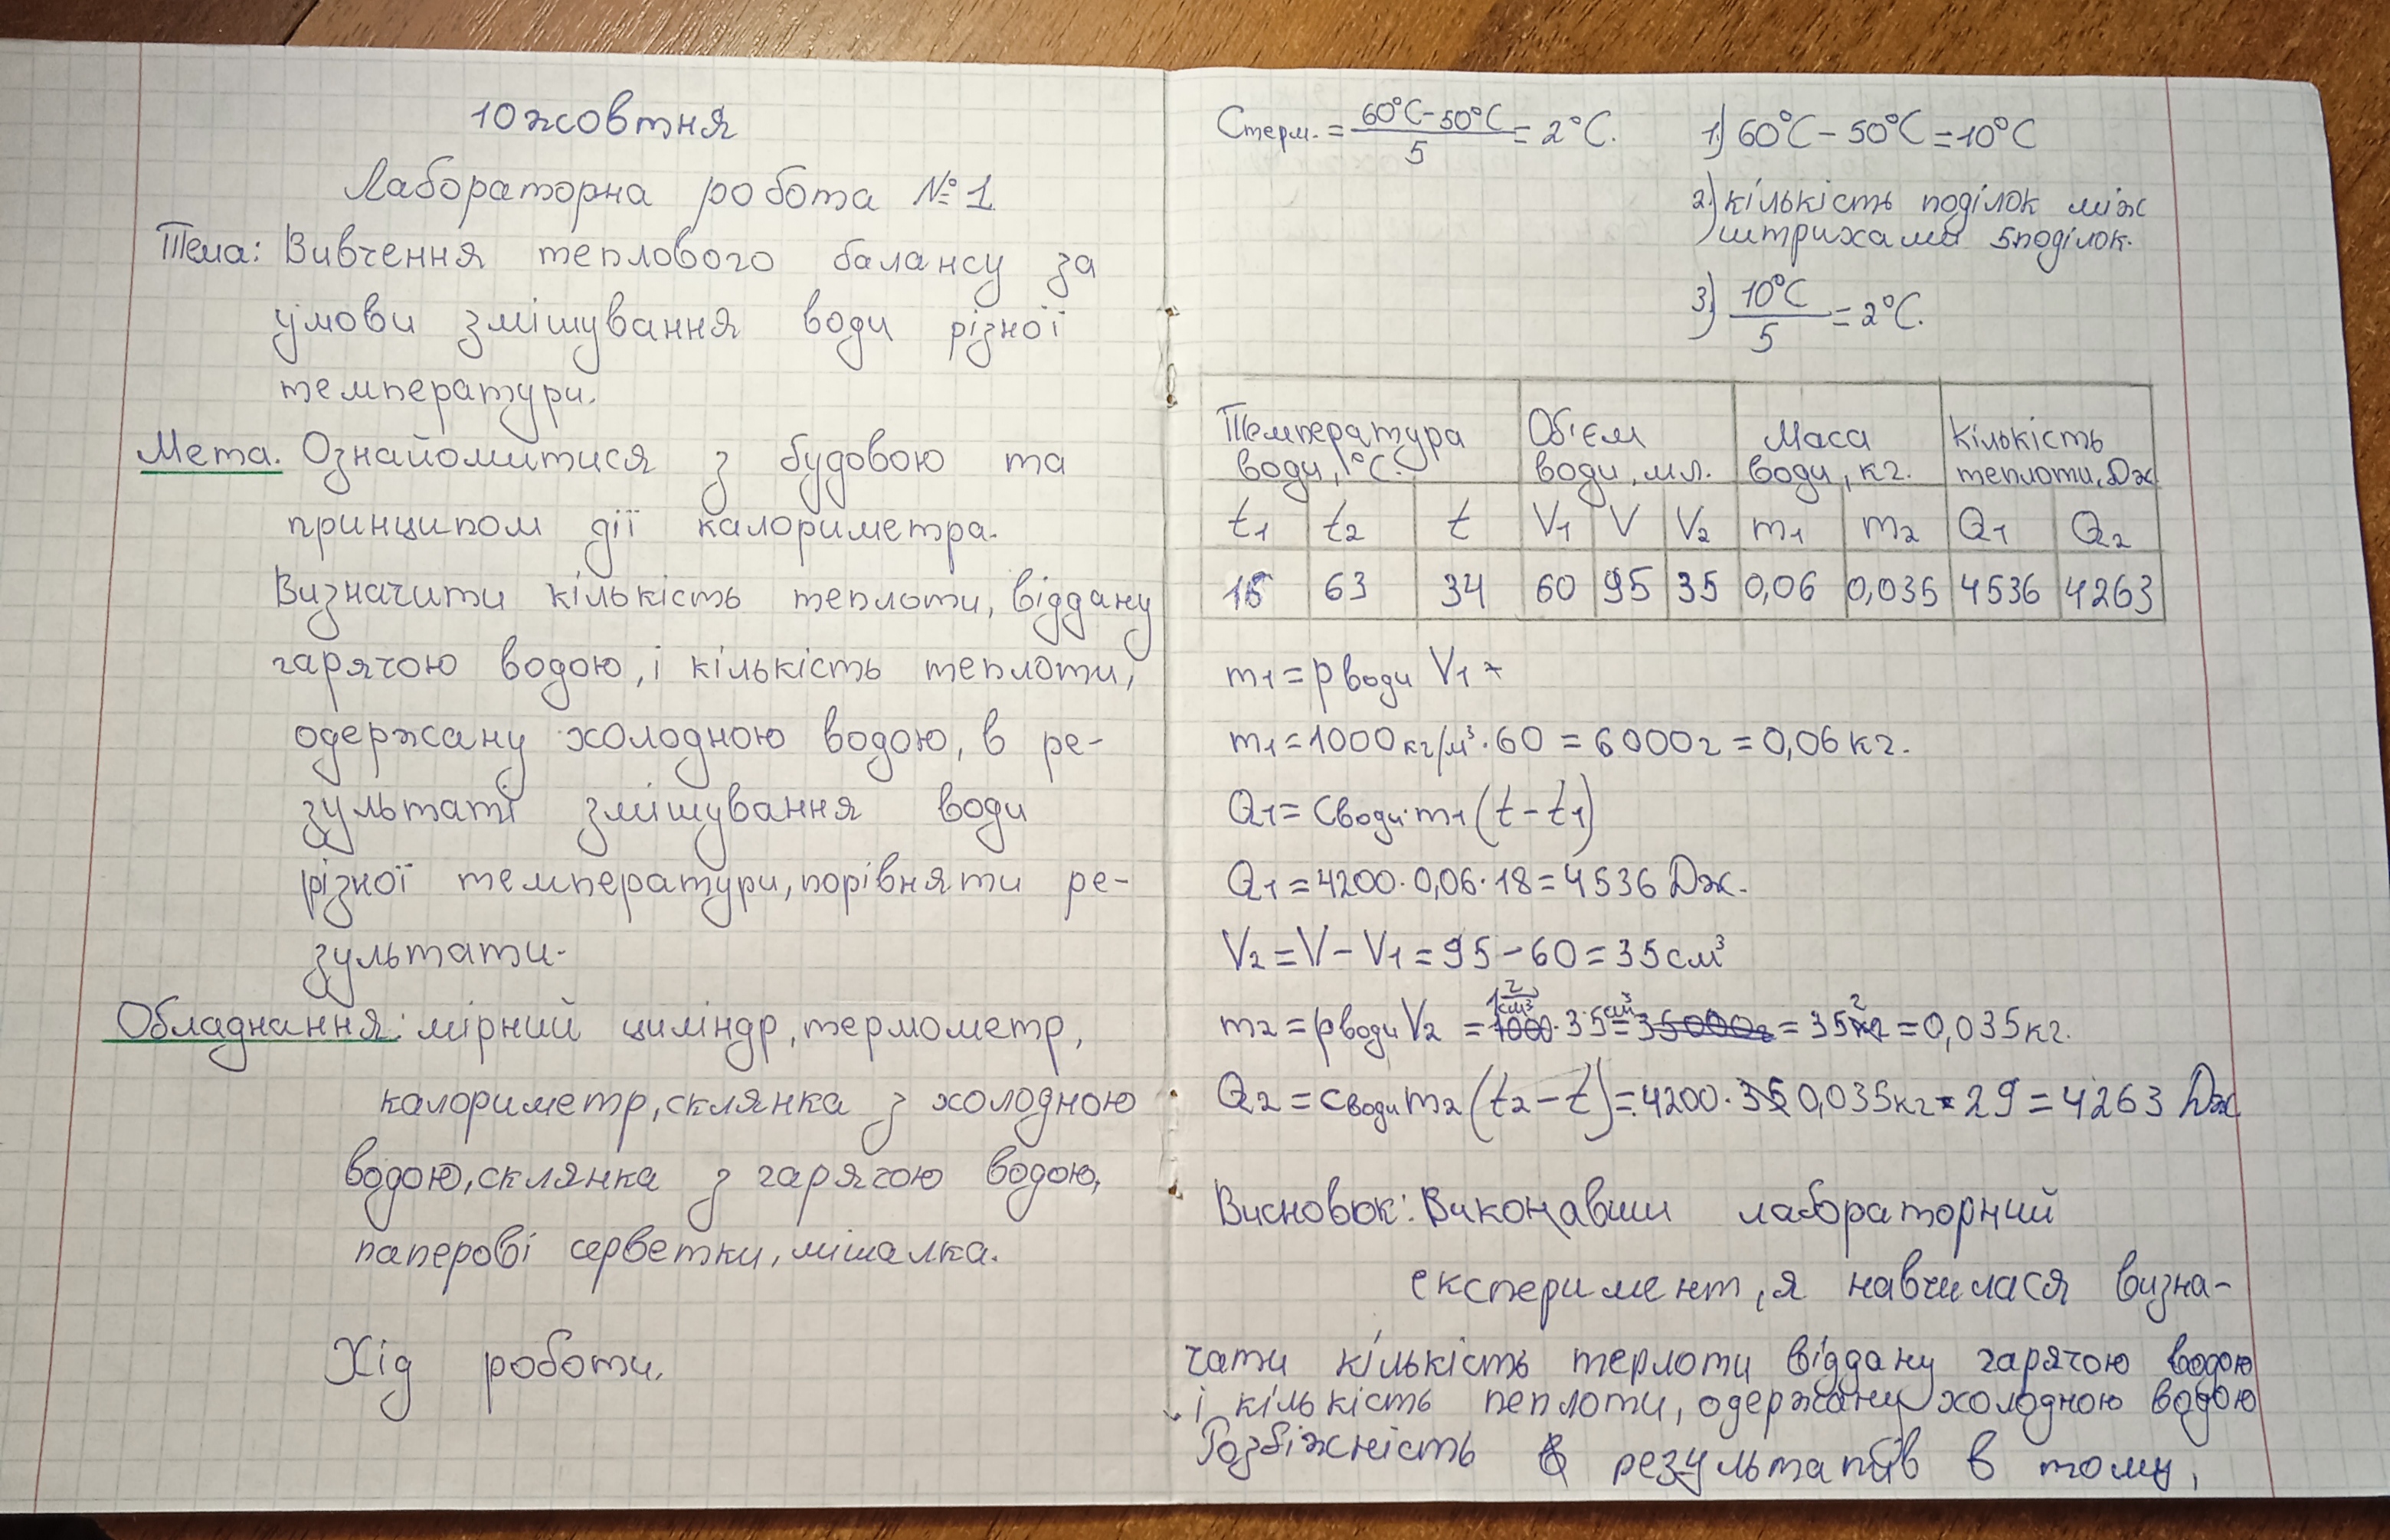 10 жовтня
Лабораторна робота №1
Тема: Вивчення теплового балансу за
умови змішування води різної
температури.
Мета. Ознайомитися з будовою та
принципом дії калориметра.
Визначити кількість теплоти, віддану
гарячою водою, і кількість теплоти,
одержану холодною водою, в ре-
зультаті змішування води
різної температури, порівняти ре-
зультати.
Обладнання: мірний циліндр, термометр,
калориметр, склянка з холодною
водою, склянка з гарячою водою,
паперові серветки, мішалка.
Хід роботи.
Cтерм. = (60°C - 50°C)/5 = 2°C.
1) 60°C - 50°C = 10°C
2) кількість поділок між
штрихами 5 поділок.
3) 10°C/5 = 2°C.
Температура води, °C. Об'єм води, мл. Маса води, кг. Кількість теплоти, Дж
t1 t2 t V1 V V2 m1 m2 Q1 Q2
16 63 34 60 95 35 0,06 0,035 4536 4263
m1 = ρ води V1
m1 = 1000 кг/м³ · 60 = 6000 г = 0,06 кг.
Q1 = Cводи · m1 (t - t1)
Q1 = 4200 · 0,06 · 18 = 4536 Дж.
V2 = V - V1 = 95 - 60 = 35 см³
m2 = ρ води V2 = 1 г/см³ · 35 см³ = 35 г = 0,035 кг.
Q2 = Cводи m2 (t2 - t) = 4200 · 0,035 кг · 29 = 4263 Дж
Висновок: Виконавши лабораторний
експеримент, я навчилася визна-
чати кількість терлоти віддану гарячою водою
і кількість пеплоти, одержану холодною водою
Розбіжність результатів в тому,